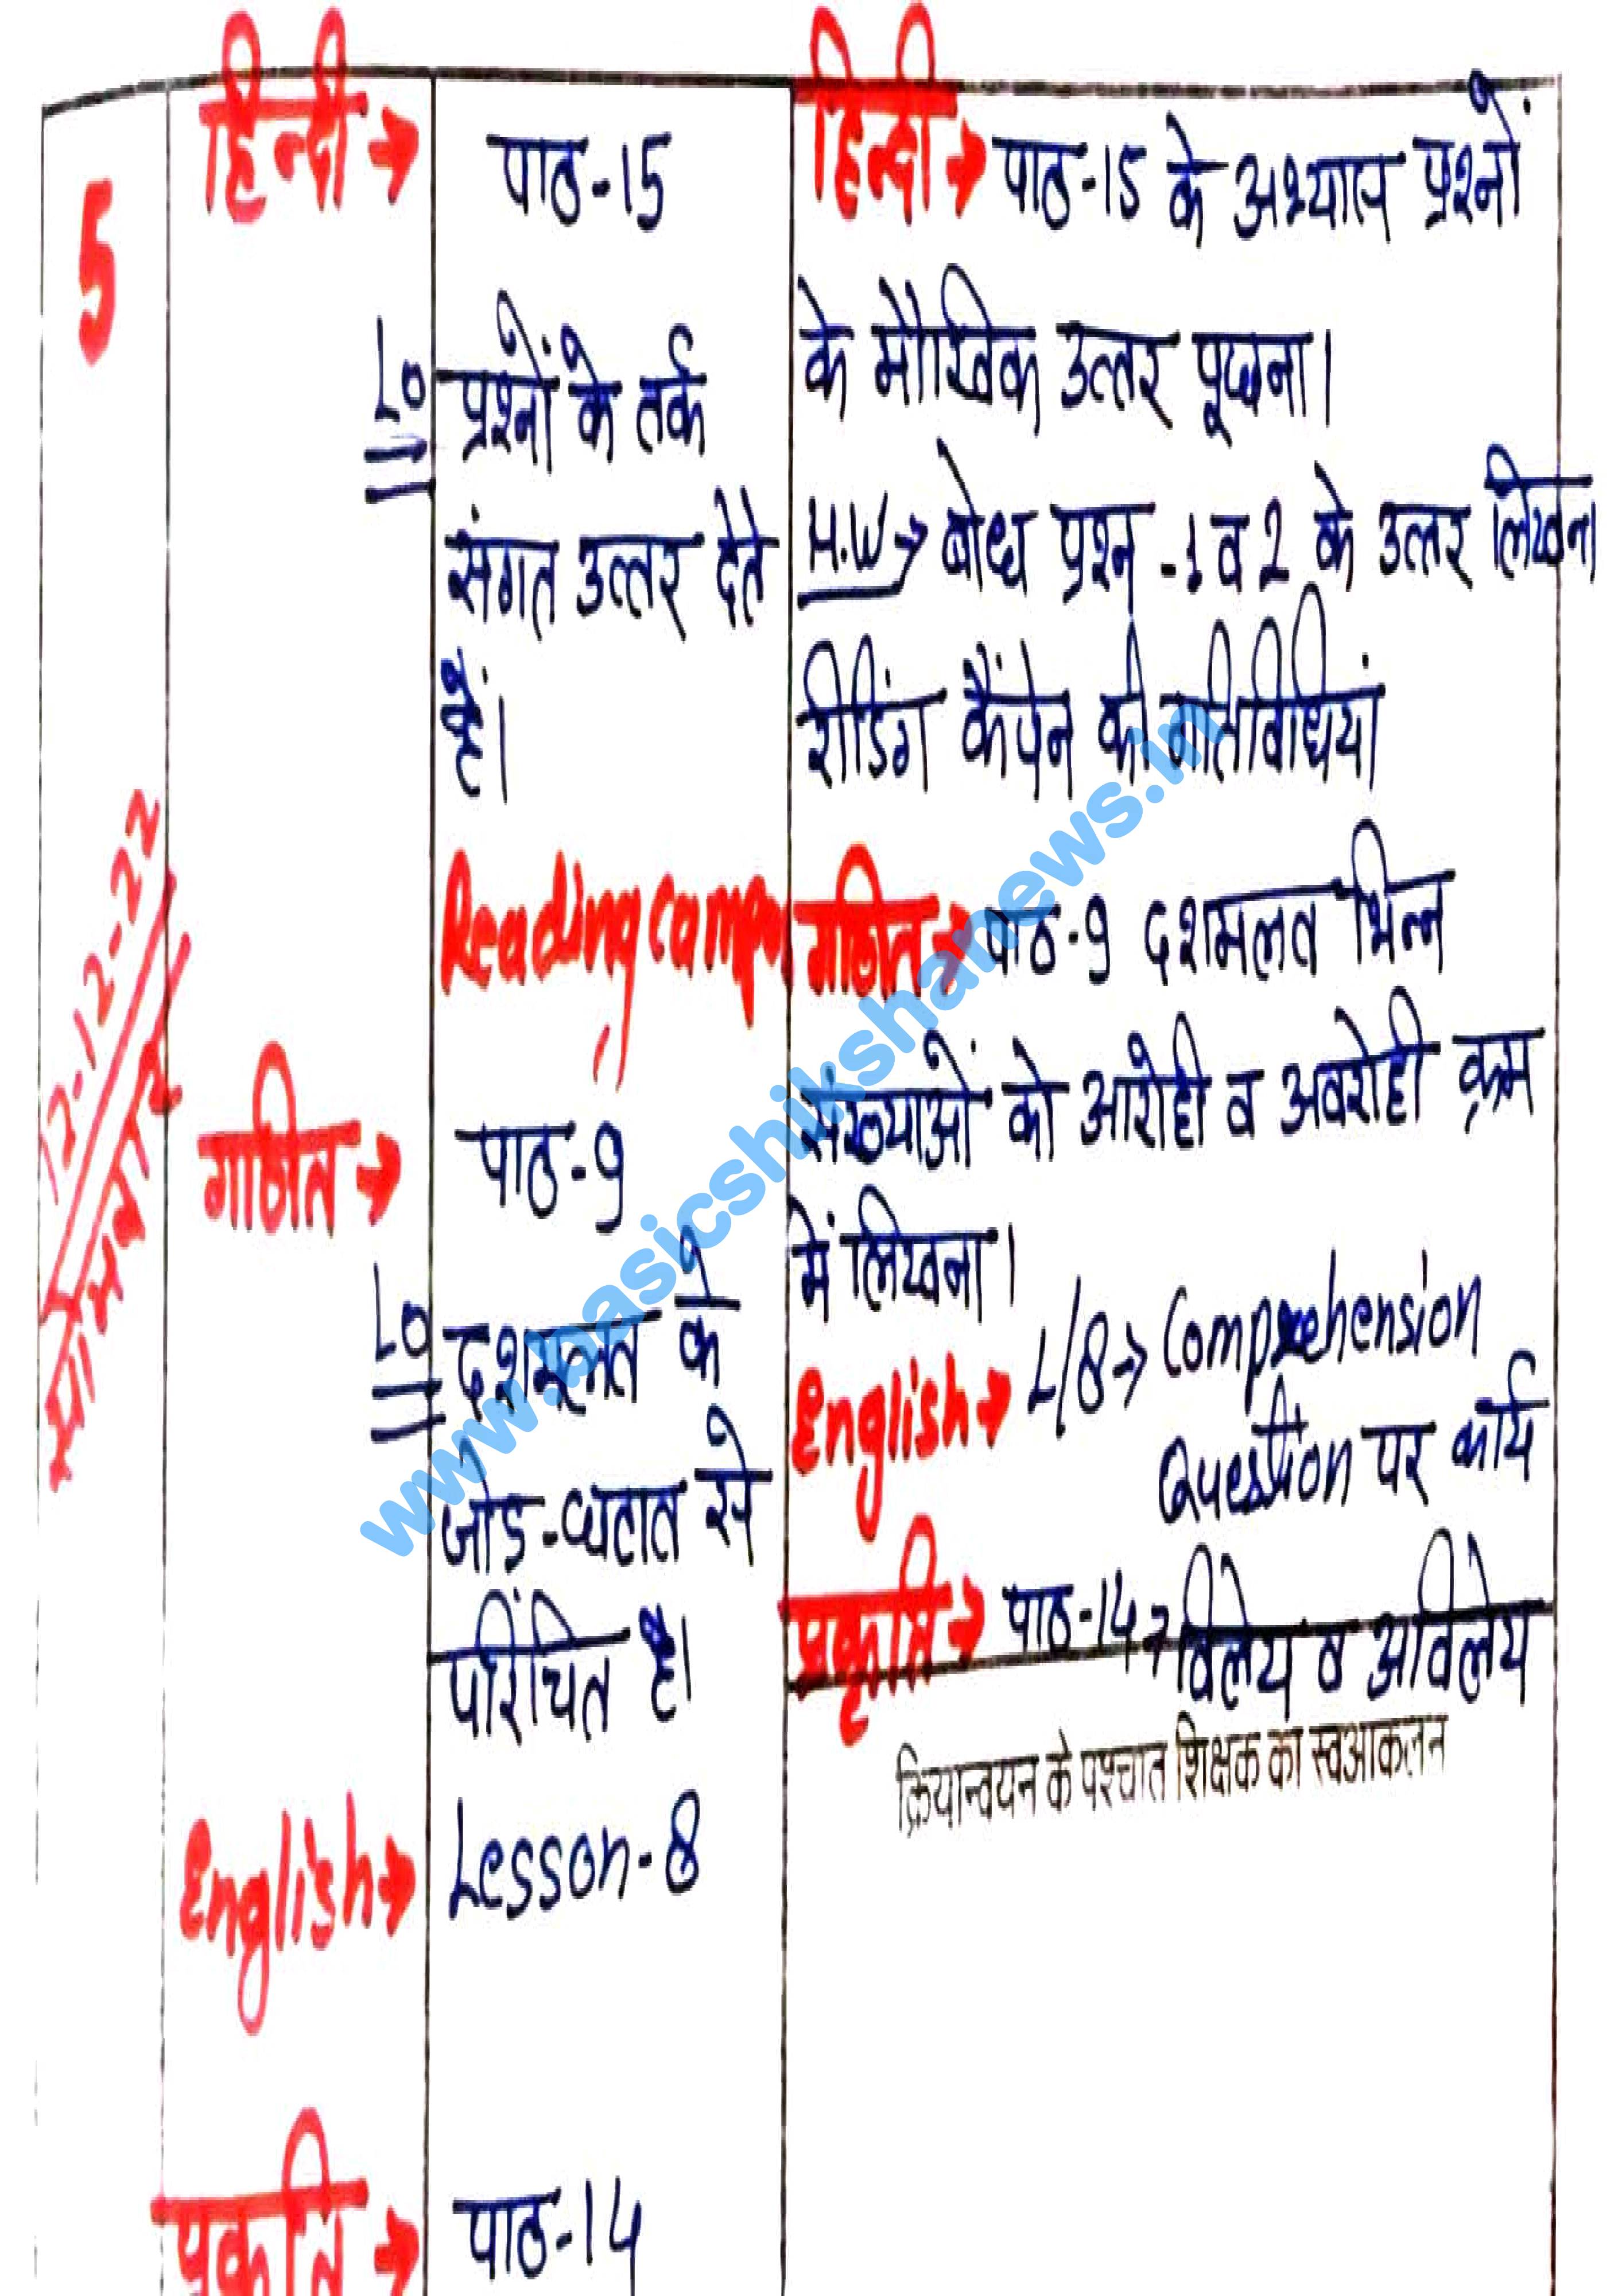 5
12-12-22
सोमवार
हिन्दी →
पाठ-15
LO
प्रश्नों के तर्क
संगत उत्तर देते
हैं।
Reading campa
ign
गणित →
पाठ-9
LO
दशमलव के
जोड-घटाव से
परिचित है।
English →
Lesson-8
प्रकृति →
पाठ-14
हिन्दी → पाठ-15 के अभ्यास प्रश्नों
के मौखिक उत्तर पूछना।
H.W → बोध प्रश्न -1 व 2 के उत्तर लिखना
रीडिंग कैंपेन की गतिविधियां
गणित → पाठ-9 दशमलव भिन्न
संख्याओं को आरोही व अवरोही क्रम
में लिखना।
English → L/8 → Comprehension
Question पर कार्य
प्रकृति → पाठ-14 → विलेय व अविलेय
क्रियान्वयन के पश्चात शिक्षक का स्वआकलन
www.basicshikshanews.in